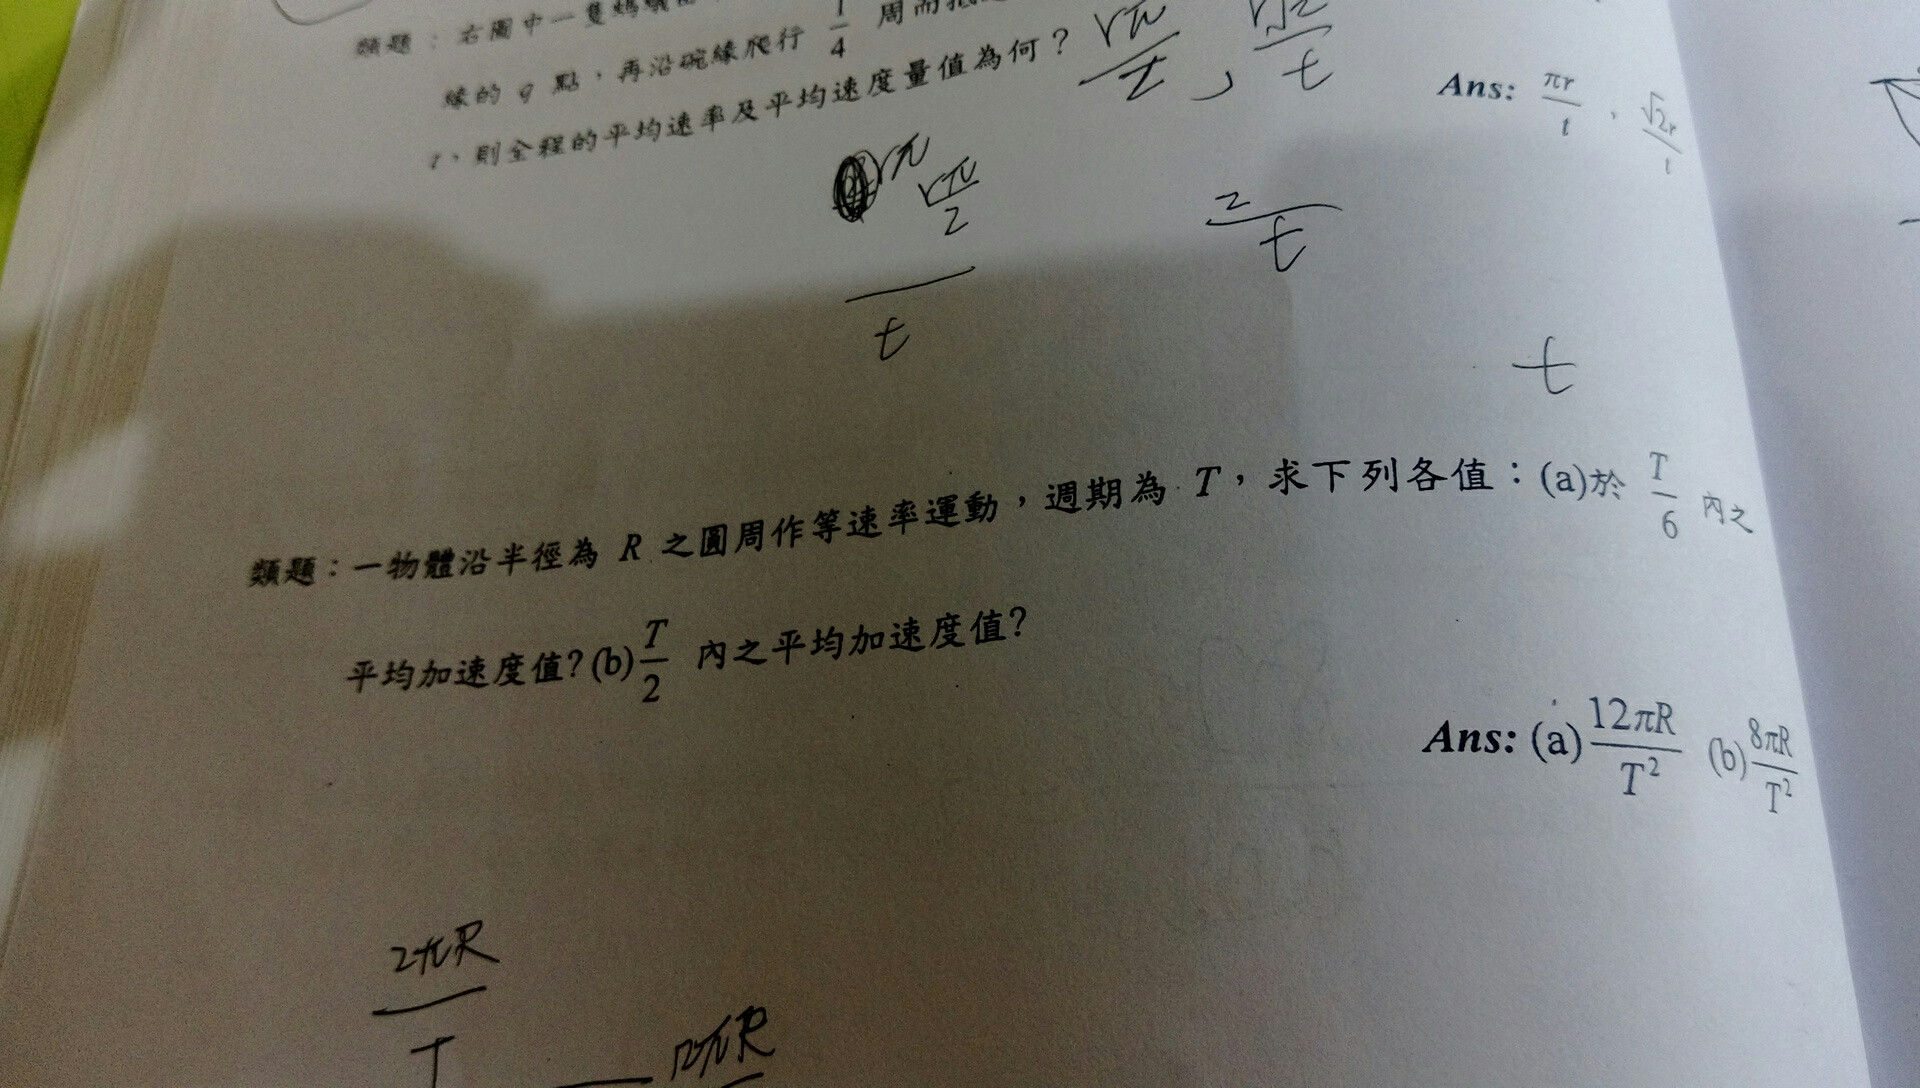 類題：右圖中一隻螞蟻
緣的 q 點，再沿碗緣爬行 1/4 周而抵
t，則全程的平均速率及平均速度量值為何？ rπ/t , r√2/t
Ans: πr/t , √2r/t
rπ rπ/2
2/t
t
t
類題：一物體沿半徑為 R 之圓周作等速率運動，週期為 T，求下列各值：(a)於 T/6 內之
平均加速度值？(b) T/2 內之平均加速度值？
Ans: (a) 12πR/T² (b) 8πR/T²
2πR/T
12πR